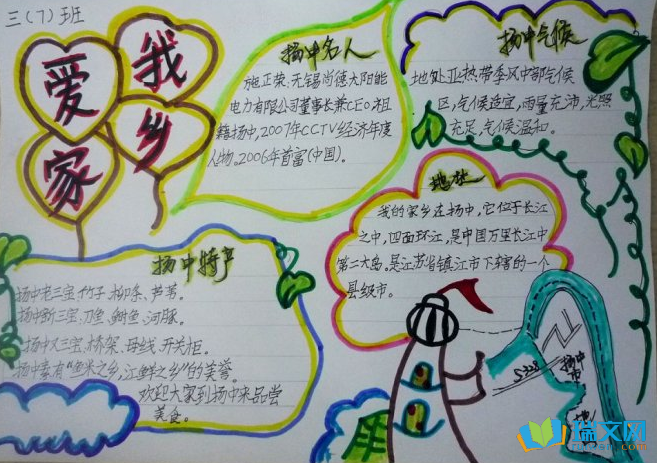 三(7)班
我
爱
乡
家
扬中名人
施正荣:无锡尚德太阳能
电力有限公司董事长兼CEO。祖
籍扬中,2007年CCTV经济年度
人物。2006年首富(中国)。
扬中气候
地处亚热带季风中部气候
区,气候适宜,雨量充沛,光照
充足,气候温和。
我的家乡在扬中,它位于长江
之中,四面环江,是中国万里长江中
第二大岛。是江苏省镇江市下辖的一个
县级市。
扬中特产
扬中老三宝、竹子、柳条、芦苇。
扬中新三宝、刀鱼、鲥鱼、河豚。
扬中又三宝、桥架、母线、开关柜。
扬中素有“鱼米之乡,江鲜之乡”的美誉。
欢迎大家到扬中来品尝
美食。
扬中
市
瑞文网